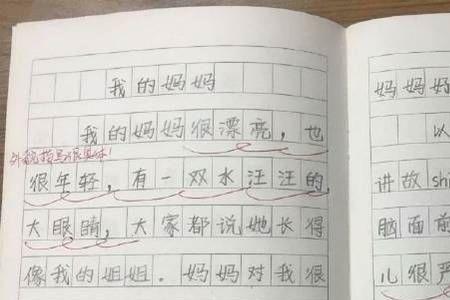 我的妈妈
我的妈妈很漂亮，也
很年轻，有一双水汪汪的，
大眼睛，大家都说她长得
像我的姐姐．妈妈对我很
妈妈妈
以
讲故shi
脑面前
儿很严